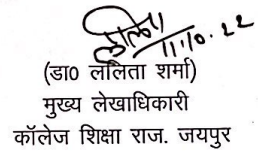 ललिता
11.10.22
(डा0 ललिता शर्मा)
मुख्य लेखाधिकारी
कॉलेज शिक्षा राज. जयपुर